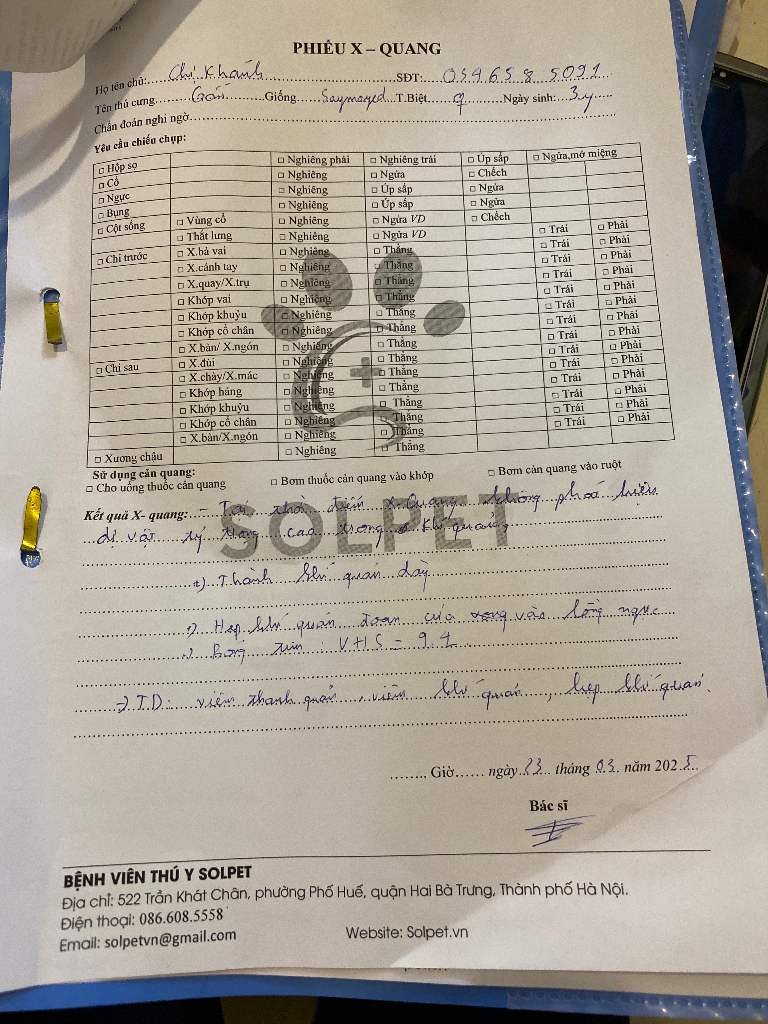 PHIẾU X – QUANG
Họ tên chủ: Chị Khánh SĐT: 034658 5091
Tên thú cưng Gấu Giống Saymoyed T.Biệt ♀ Ngày sinh: 3y
Chẩn đoán nghi ngờ
Yêu cầu chiếu chụp:
□ Hộp sọ □ Nghiêng phải □ Nghiêng trái □ Úp sấp □ Ngửa,mở miệng
□ Cổ □ Nghiêng □ Ngửa □ Chếch
□ Ngực □ Nghiêng □ Úp sấp □ Ngửa
□ Bụng □ Nghiêng □ Úp sấp □ Ngửa
□ Cột sống □ Vùng cổ □ Nghiêng □ Ngửa VD □ Chếch
□ Thắt lưng □ Nghiêng □ Ngửa VD
□ Chi trước □ X.bả vai □ Nghiêng □ Thẳng □ Trái □ Phải
□ X.cánh tay □ Nghiêng □ Thẳng □ Trái □ Phải
□ X.quay/X.trụ □ Nghiêng □ Thẳng □ Trái □ Phải
□ Khớp vai □ Nghiêng □ Thẳng □ Trái □ Phải
□ Khớp khuỷu □ Nghiêng □ Thẳng □ Trái □ Phải
□ Khớp cổ chân □ Nghiêng □ Thẳng □ Trái □ Phải
□ X.bàn/ X.ngón □ Nghiêng □ Thẳng □ Trái □ Phải
□ Chi sau □ X.đùi □ Nghiêng □ Thẳng □ Trái □ Phải
□ X.chày/X.mác □ Nghiêng □ Thẳng □ Trái □ Phải
□ Khớp háng □ Nghiêng □ Thẳng □ Trái □ Phải
□ Khớp khuỷu □ Nghiêng □ Thẳng □ Trái □ Phải
□ Khớp cổ chân □ Nghiêng □ Thẳng □ Trái □ Phải
□ X.bàn/X.ngón □ Nghiêng □ Thẳng □ Trái □ Phải
□ Xương chậu □ Nghiêng □ Thẳng
Sử dụng cản quang:
□ Cho uống thuốc cản quang □ Bơm thuốc cản quang vào khớp □ Bơm cản quang vào ruột
SOLPET
Kết quả X- quang: - Tại thời điểm XQuang không phát hiện
dị vật tỷ trọng cao trong khí quản
Thành khí quản dày
Hẹp khí quản đoạn cửa vào lồng ngực
Bóng tim : VHS = 9.4
=> TD: viêm thanh quản, viêm khí quản, hẹp khí quản.
Giờ ngày 23 tháng 03 năm 2025
Bác sĩ
BỆNH VIỆN THÚ Y SOLPET
Địa chỉ: 522 Trần Khát Chân, phường Phố Huế, quận Hai Bà Trưng, Thành phố Hà Nội.
Điện thoại: 086.608.5558
Email: solpetvn@gmail.com Website: Solpet.vn